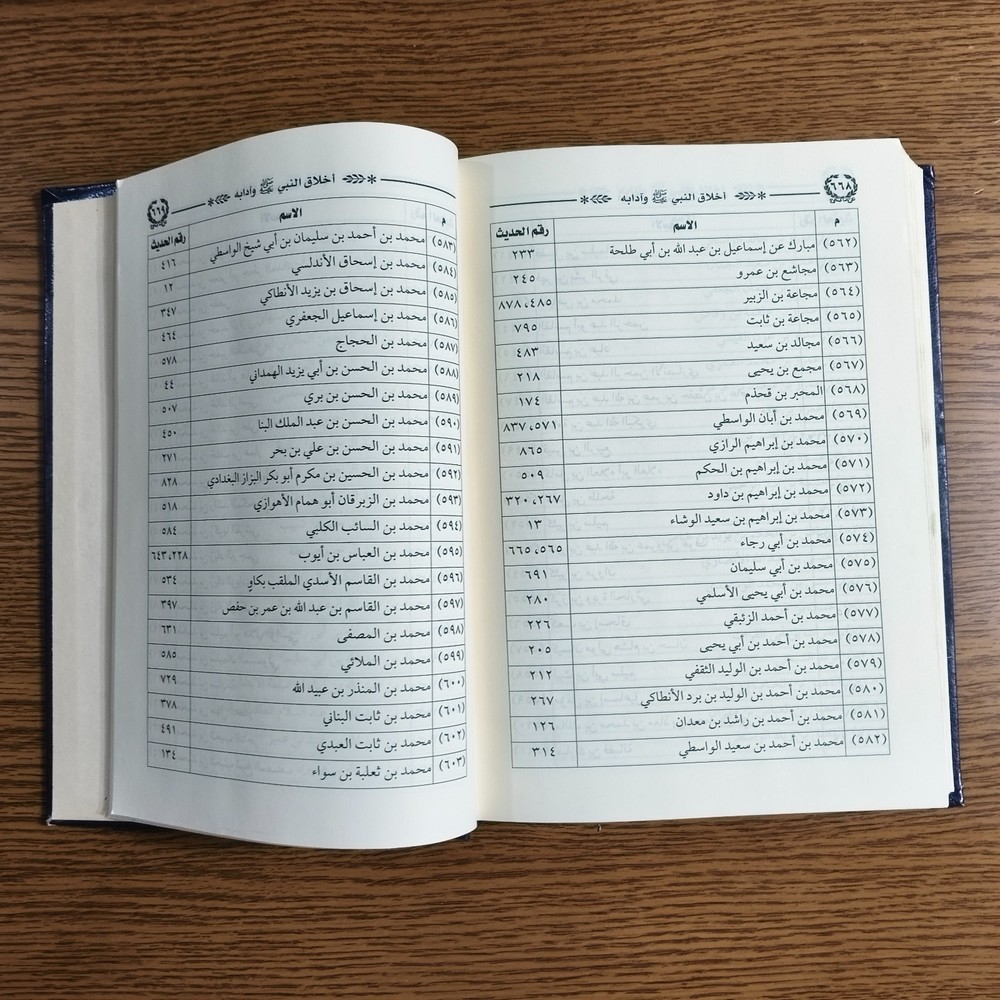 ٦٦٨ أخلاق النبي ﷺ وآدابه
م الاسم رقم الحديث
(٥٦٢) مبارك عن إسماعيل بن عبد الله بن أبي طلحة ٢٣٣
(٥٦٣) مجاشع بن عمرو ٢٤٥
(٥٦٤) مجاعة بن الزبير ٤٨٥، ٨٧٨
(٥٦٥) مجاعة بن ثابت ٧٩٥
(٥٦٦) مجالد بن سعيد ٤٨٣
(٥٦٧) مجمع بن يحيى ٢١٨
(٥٦٨) المحبر بن قحذم ١٧٤
(٥٦٩) محمد بن أبان الواسطي ٥٧١، ٨٣٧
(٥٧٠) محمد بن إبراهيم الرازي ٨٦٥
(٥٧١) محمد بن إبراهيم بن الحكم ٥٠٩
(٥٧٢) محمد بن إبراهيم بن داود ٢٦٧، ٣٢٠
(٥٧٣) محمد بن إبراهيم بن سعيد الوشاء ١٣
(٥٧٤) محمد بن أبي رجاء ٥٦٥، ٦٦٥
(٥٧٥) محمد بن أبي سليمان ٦٩١
(٥٧٦) محمد بن أبي يحيى الأسلمي ٢٨٠
(٥٧٧) محمد بن أحمد الزئبقي ٢٢٦
(٥٧٨) محمد بن أحمد بن أبي يحيى ٢٠٥
(٥٧٩) محمد بن أحمد بن الوليد الثقفي ٢١٢
(٥٨٠) محمد بن أحمد بن الوليد بن برد الأنطاكي ٢٦٧
(٥٨١) محمد بن أحمد بن راشد بن معدان ١٢٦
(٥٨٢) محمد بن أحمد بن سعيد الواسطي ٣١٤
أخلاق النبي ﷺ وآدابه ٦٦٩
م الاسم رقم الحديث
(٥٨٣) محمد بن أحمد بن سليمان بن أبي شيخ الواسطي ٤١٦
(٥٨٤) محمد بن إسحاق الأندلسي ١٢
(٥٨٥) محمد بن إسحاق بن يزيد الأنطاكي ٣٤٧
(٥٨٦) محمد بن إسماعيل الجعفري ٤٦٤
(٥٨٧) محمد بن الحجاج ٥٧٨
(٥٨٨) محمد بن الحسن بن أبي يزيد الهمداني ٤٤
(٥٨٩) محمد بن الحسن بن بري ٥٠٧
(٥٩٠) محمد بن الحسن بن عبد الملك البنا ٤٥٠
(٥٩١) محمد بن الحسن بن علي بن بحر ٢٧١
(٥٩٢) محمد بن الحسين بن مكرم أبو بكر البزاز البغدادي ٨٢٨
(٥٩٣) محمد بن الزبرقان أبو همام الأهوازي ٥١٨
(٥٩٤) محمد بن السائب الكلبي ٥٨٤
(٥٩٥) محمد بن العباس بن أيوب ٢٢٨، ٦٤٣
(٥٩٦) محمد بن القاسم الأسدي الملقب بكاوٍ ٥٣٤
(٥٩٧) محمد بن القاسم بن عبد الله بن عمر بن حفص ٣٩٧
(٥٩٨) محمد بن المصفى ٦٣١
(٥٩٩) محمد بن الملائي ٥٨٥
(٦٠٠) محمد بن المنذر بن عبيد الله ٧٢٩
(٦٠١) محمد بن ثابت البناني ٣٧٨
(٦٠٢) محمد بن ثابت العبدي ٤٩١
(٦٠٣) محمد بن ثعلبة بن سواء ١٣٤